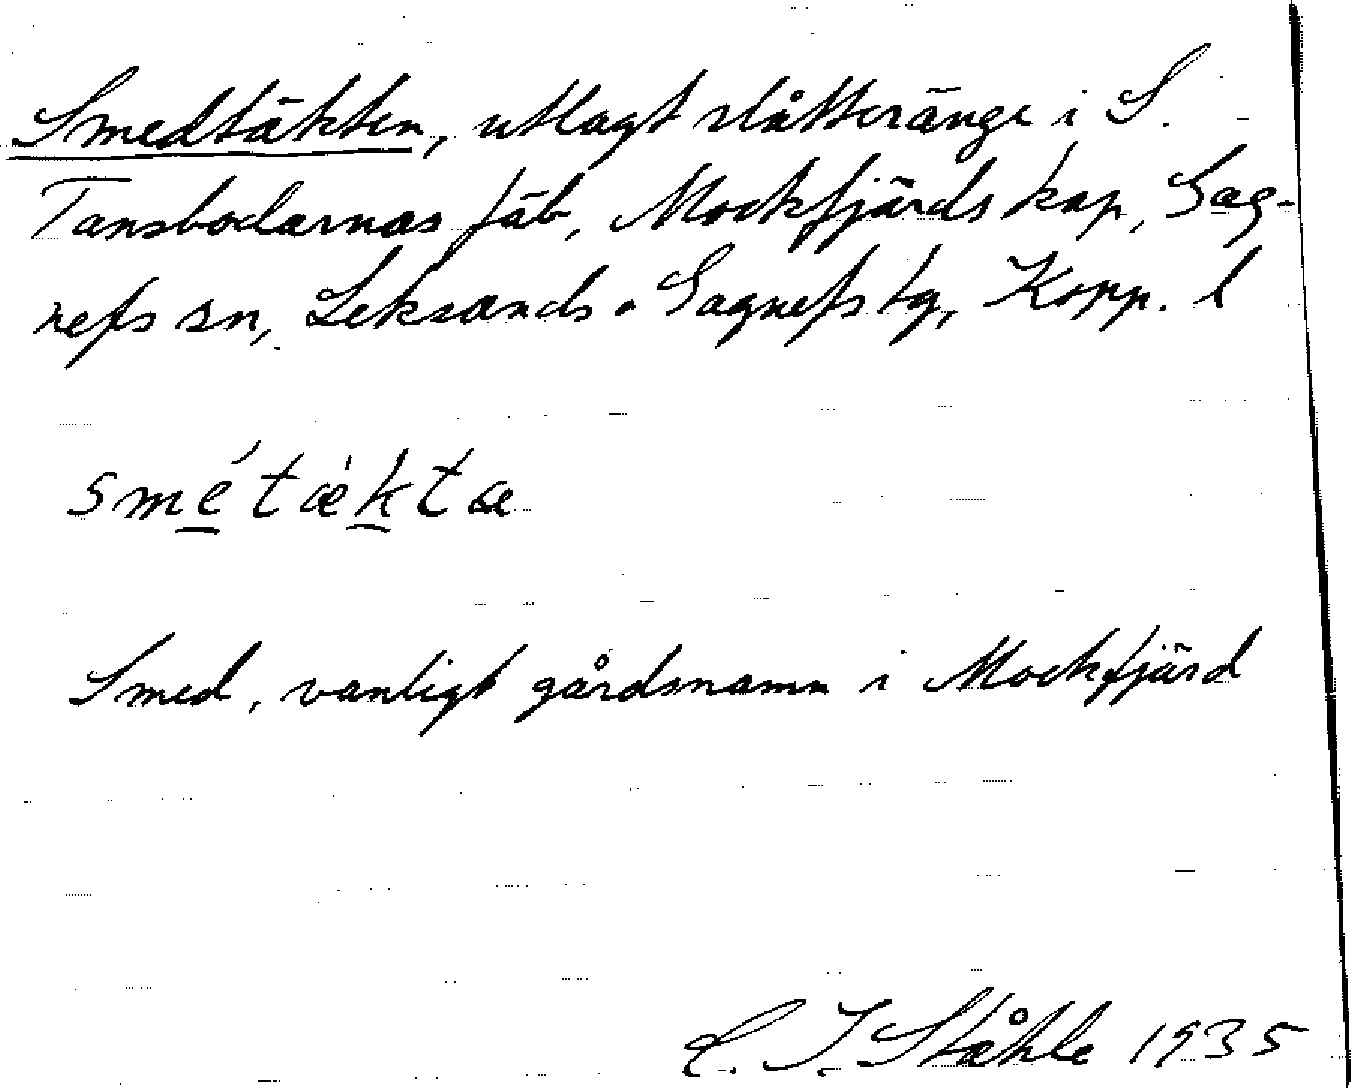 Smedtäkten, utlagt slåtteränge i S.
Tansbodarnas fäb, Mockfjärds kap, Gag-
nefs sn, Leksands o Gagnefs tg, Kopp. l
smétækta
Smed, vanligt gårdsnamn i Mockfjärd
C. I. Ståhle 1935